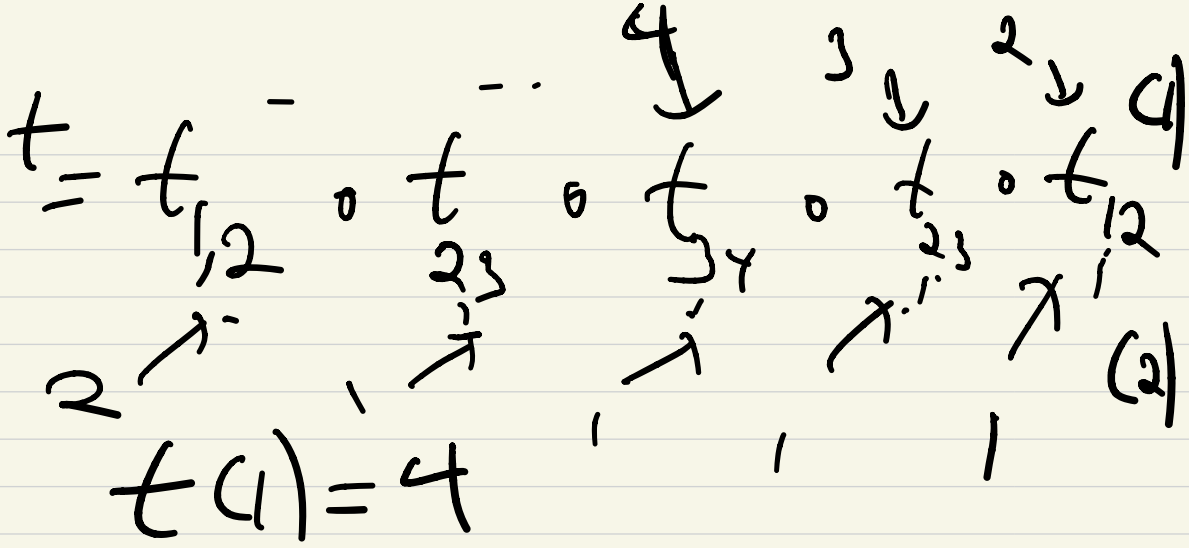 4 3 2
- - - . ↓ ↓ ↓ (1)
t = t₁,₂ ∘ t₂₃ ∘ t₃₄ ∘ t₂₃ ∘ t₁₂
2 ↗ 1 ↗ 1 ↗ 1 ↗ 1 ↗ (2)
t(1) = 4